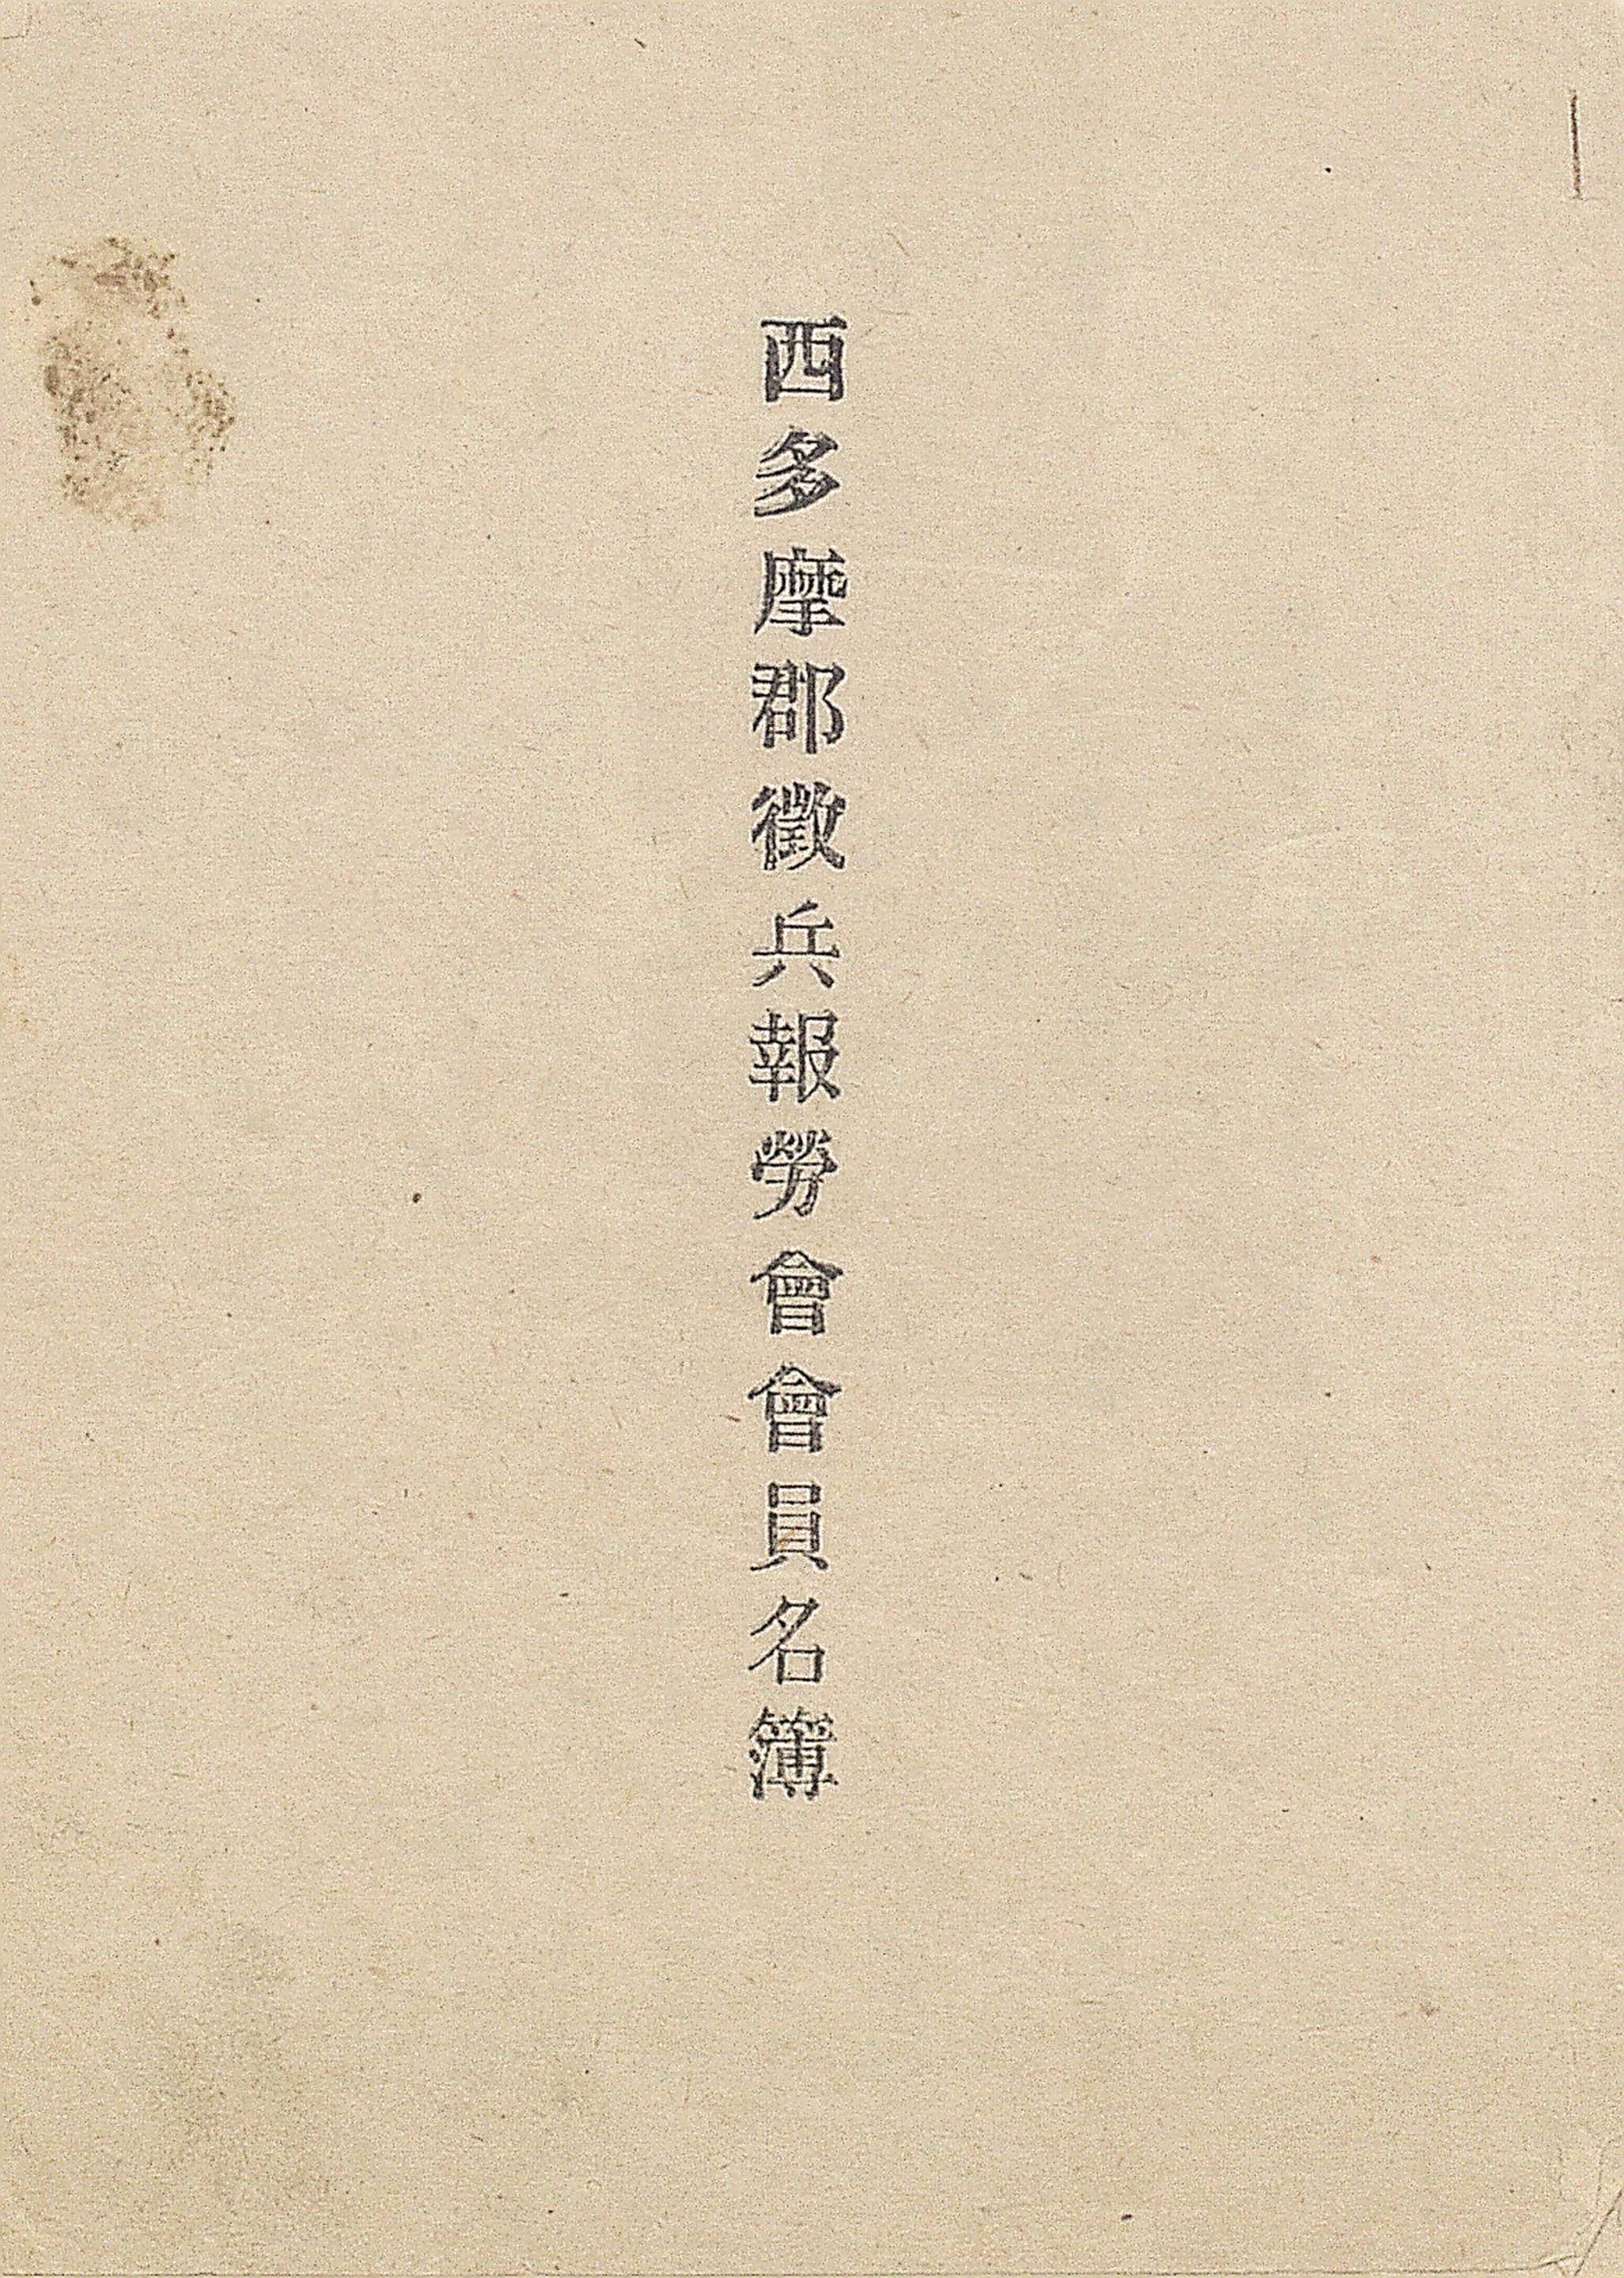 西多摩郡徴兵報勞會會員名簿